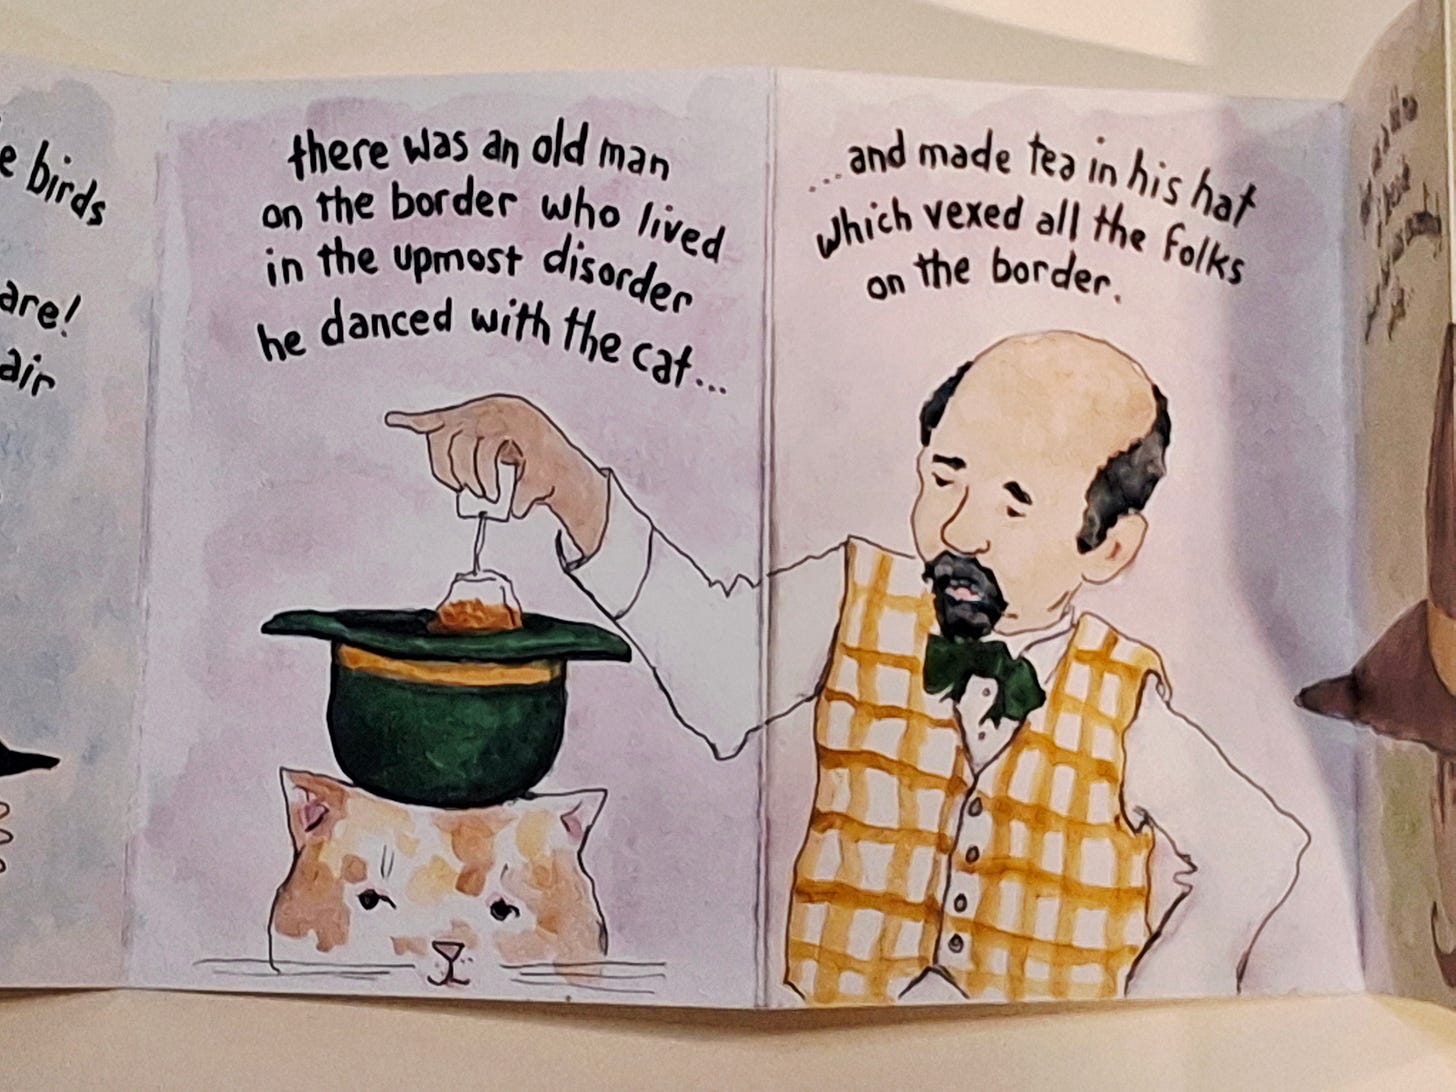 birds
are!
air
there was an old man
on the border who lived
in the upmost disorder
he danced with the cat...
...and made tea in his hat
which vexed all the folks
on the border.